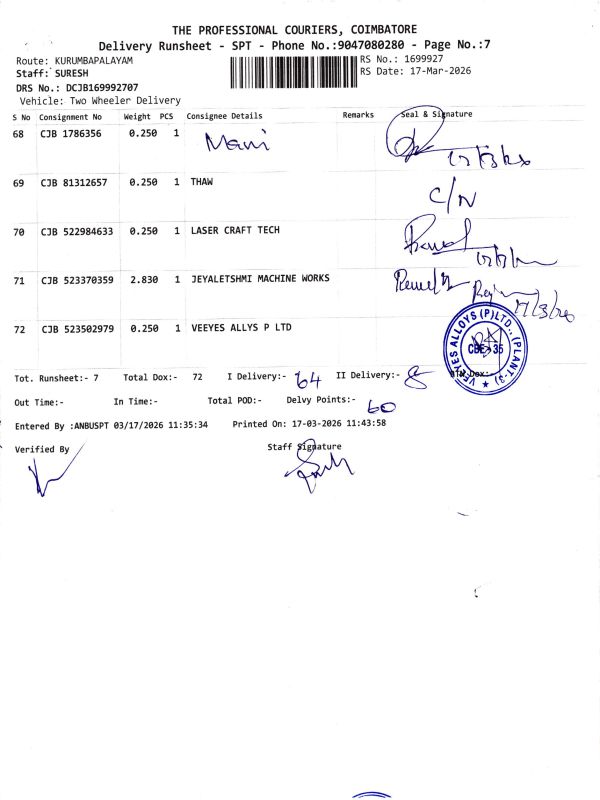 THE PROFESSIONAL COURIERS, COIMBATORE
Delivery Runsheet - SPT - Phone No.:9047080280 - Page No.:7
Route: KURUMBAPALAYAM
RS No.: 1699927
Staff: SURESH
RS Date: 17-Mar-2026
DRS No.: DCJB169992707
Vehicle: Two Wheeler Delivery
S No Consignment No Weight PCS Consignee Details Remarks Seal & Signature
68 CJB 1786356 0.250 1 Mani
69 CJB 81312657 0.250 1 THAW C/N
70 CJB 522984633 0.250 1 LASER CRAFT TECH
71 CJB 523370359 2.830 1 JEYALETSHMI MACHINE WORKS 17/3/26
72 CJB 523502979 0.250 1 VEEYES ALLYS P LTD
VEEYES ALLOYS (P) LTD., (PLANT-3)
CBE-35
Tot. Runsheet:- 7 Total Dox:- 72 I Delivery:- 64 II Delivery:- 8 Dox:-
Out Time:- In Time:- Total POD:- Delvy Points:- 60
Entered By :ANBUSPT 03/17/2026 11:35:34 Printed On: 17-03-2026 11:43:58
Verified By Staff Signature